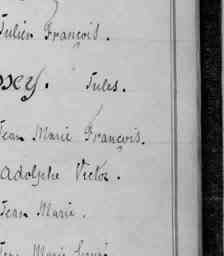 Julien François.
oxey. Jules.
Jean Marie François.
Adolphe Victor.
Jean Marie.
Jean Marie